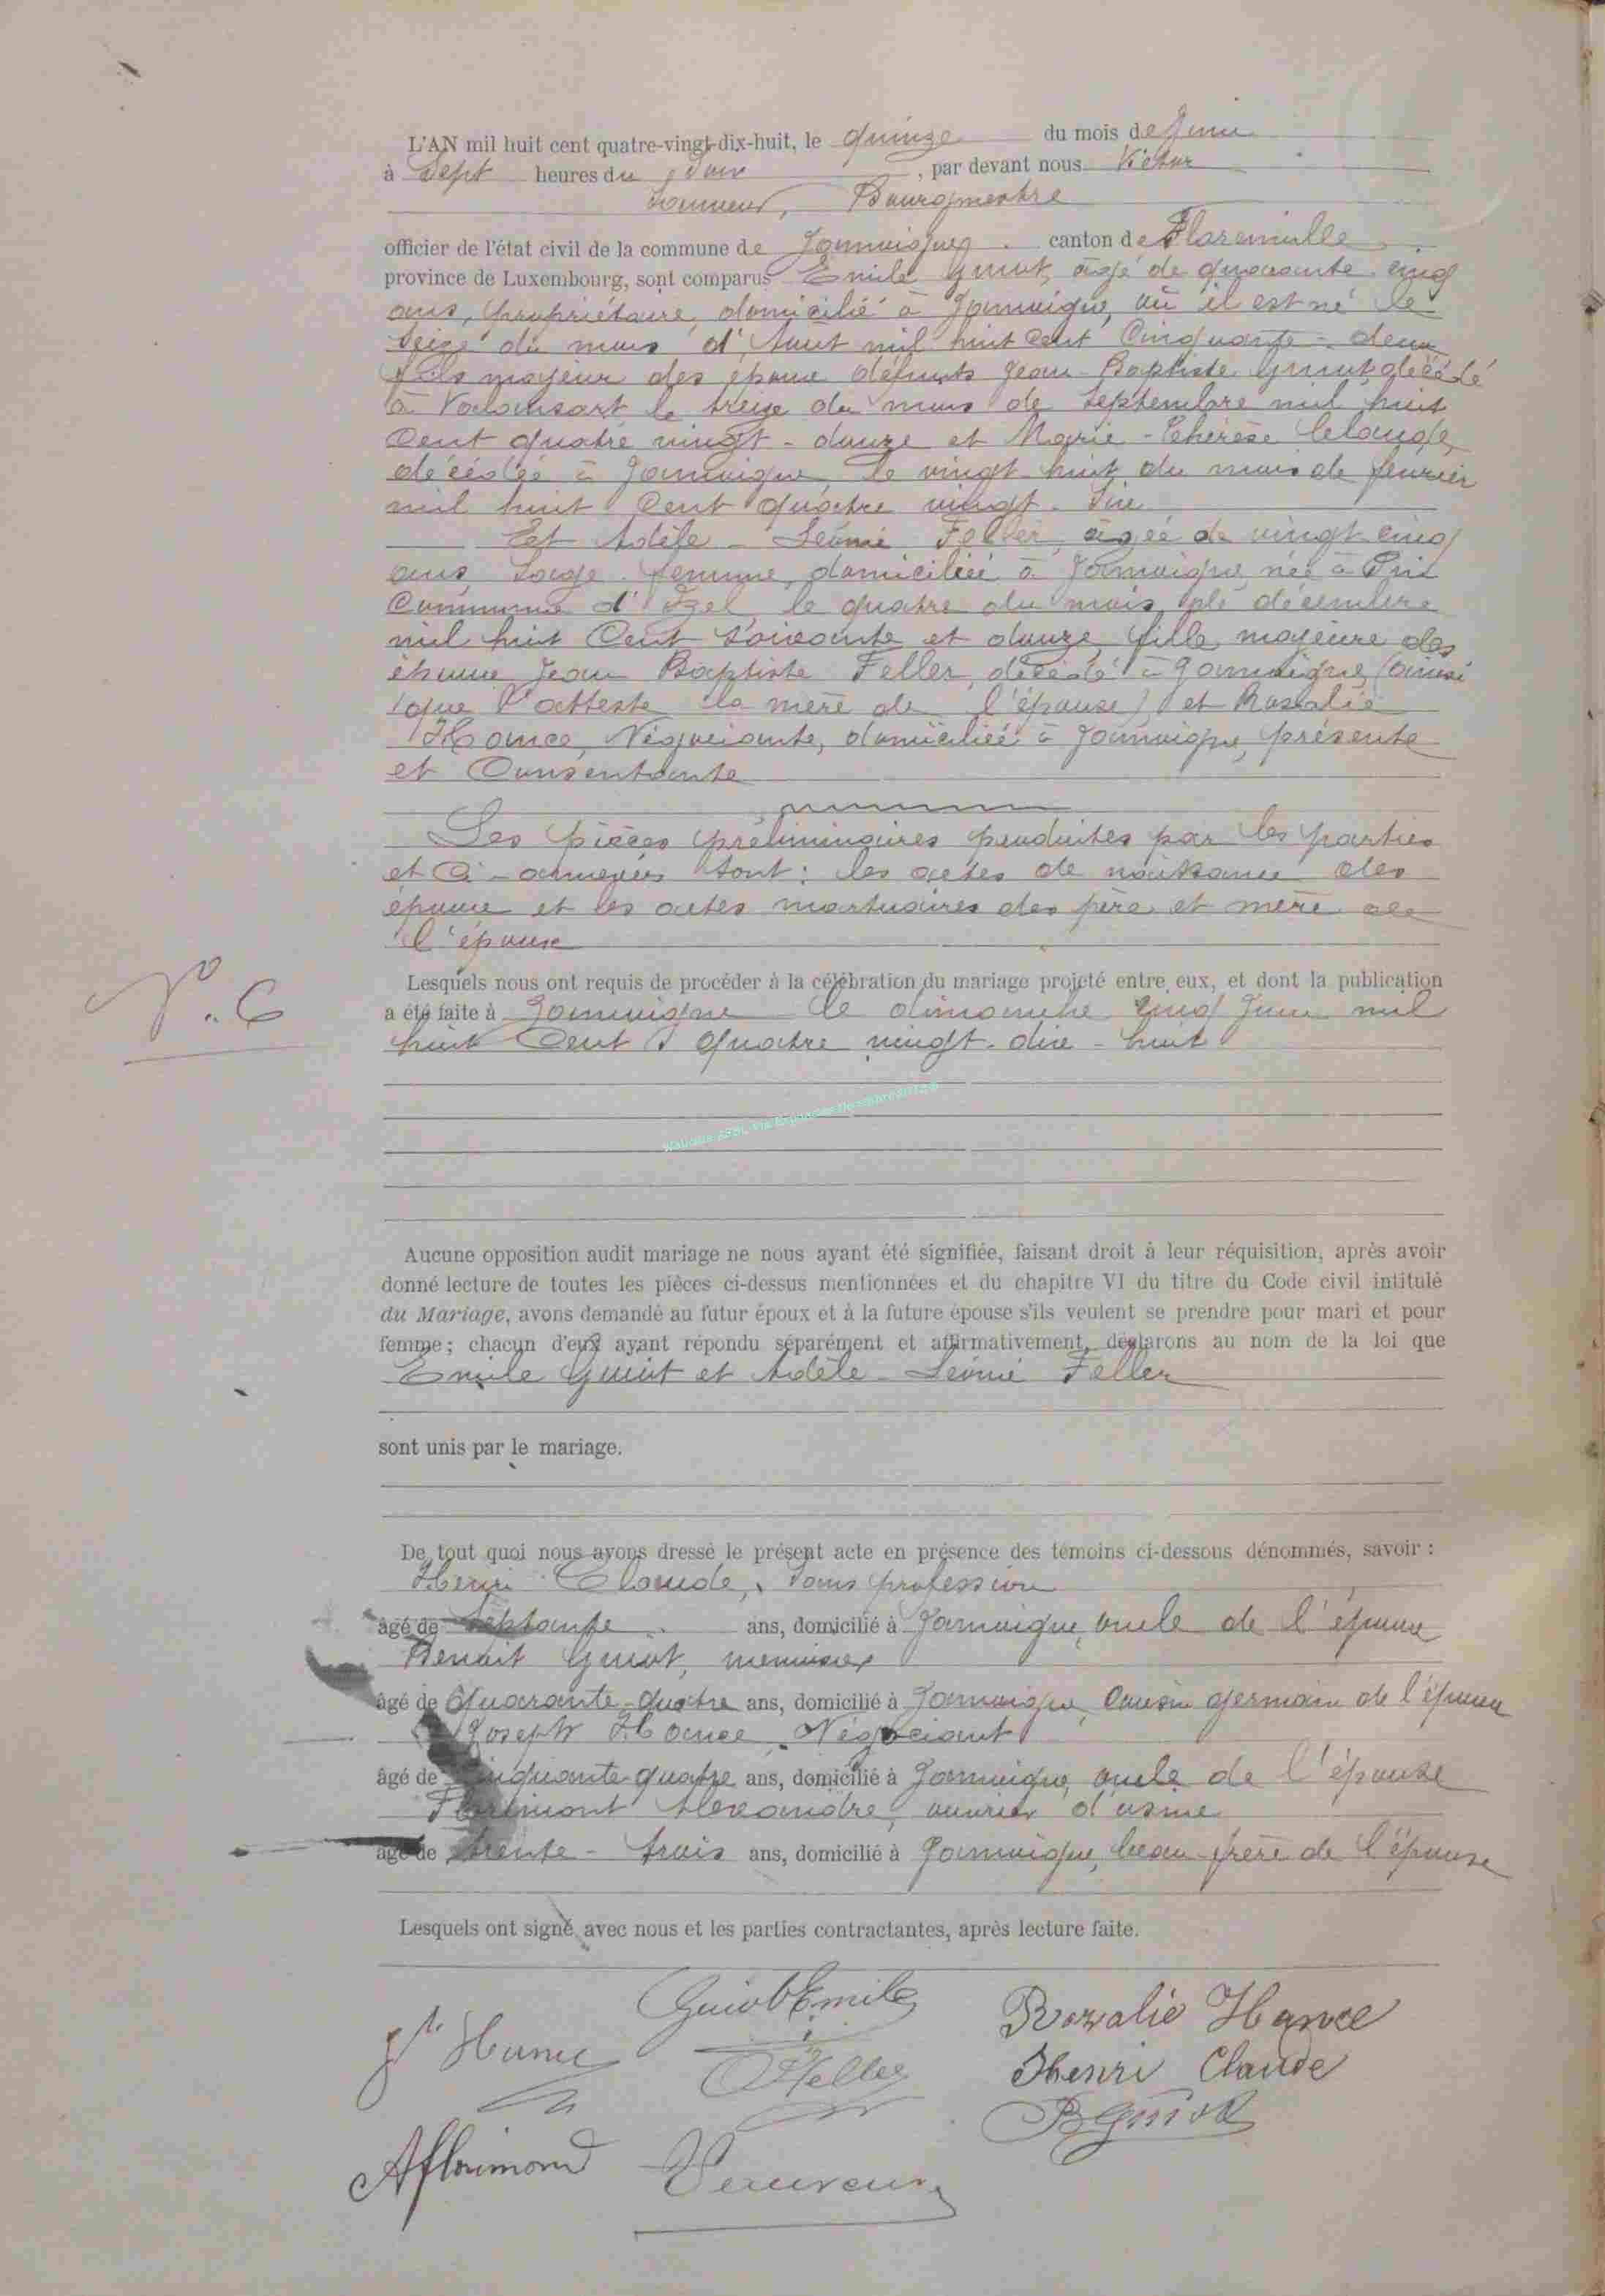 L'AN mil huit cent quatre-vingt-dix-huit, le quinze du mois de Juin
à Sept heures du Soir, par devant nous Victor
Bourgmestre
officier de l'état civil de la commune de Jamoigne, canton de Florenville,
province de Luxembourg, sont comparus Emile Guiot, âgé de quarante cinq
ans, propriétaire, domicilié à Jamoigne, où il est né le
seize du mois d'Août mil huit cent Cinquante-deux
fils majeur des époux défunts Jean-Baptiste Guiot, décédé
à Valansart le treize du mois de Septembre mil huit
Cent quatre vingt-douze et Marie-Thérèse Claude,
décédée à Jamoigne, le vingt huit du mois de février
mil huit Cent quatre vingt-Six
Et Adèle-Léonie Feller, âgée de vingt cinq
ans, Sage-femme, domiciliée à Jamoigne, née à Pin
Commune d'Izel, le quatre du mois de décembre
mil huit Cent Soixante et douze, fille majeure des
époux Jean Baptiste Feller, décédé à Jamoigne, (ainsi
que l'atteste la mère de l'épouse) et Rosalie
Hance, Négociante, domiciliée à Jamoigne, présente
et Consentante
Les pièces préliminaires produites par les parties
et Ci-annexées Sont : les actes de naissance des
époux et les actes mortuaires des père et mère de
l'époux
N°. 6
Lesquels nous ont requis de procéder à la célébration du mariage projeté entre eux, et dont la publication
a été faite à Jamoigne le dimanche cinq Juin mil
huit Cent quatre vingt-dix-huit
Aucune opposition audit mariage ne nous ayant été signifiée, faisant droit à leur réquisition, après avoir
donné lecture de toutes les pièces ci-dessus mentionnées et du chapitre VI du titre du Code civil intitulé
du Mariage, avons demandé au futur époux et à la future épouse s'ils veulent se prendre pour mari et pour
femme ; chacun d'eux ayant répondu séparément et affirmativement, déclarons au nom de la loi que
Emile Guiot et Adèle-Léonie Feller
sont unis par le mariage.
De tout quoi nous avons dressé le présent acte en présence des témoins ci-dessous dénommés, savoir :
Henri Claude, Sans profession
âgé de Septante ans, domicilié à Jamoigne, oncle de l'époux
Benoit Guiot, menuisier
âgé de Quarante-quatre ans, domicilié à Jamoigne, Cousin germain de l'époux
Joseph Hance, Négociant
âgé de Cinquante-quatre ans, domicilié à Jamoigne, oncle de l'épouse
Florimont Alexandre, ouvrier d'usine
âgé de trente-trois ans, domicilié à Jamoigne, beau-frère de l'épouse
Lesquels ont signé avec nous et les parties contractantes, après lecture faite.
Guiot Emile
Rozalie Hance
Jh Hance
AFeller
Henri Claude
BGuiot
AFlorimond